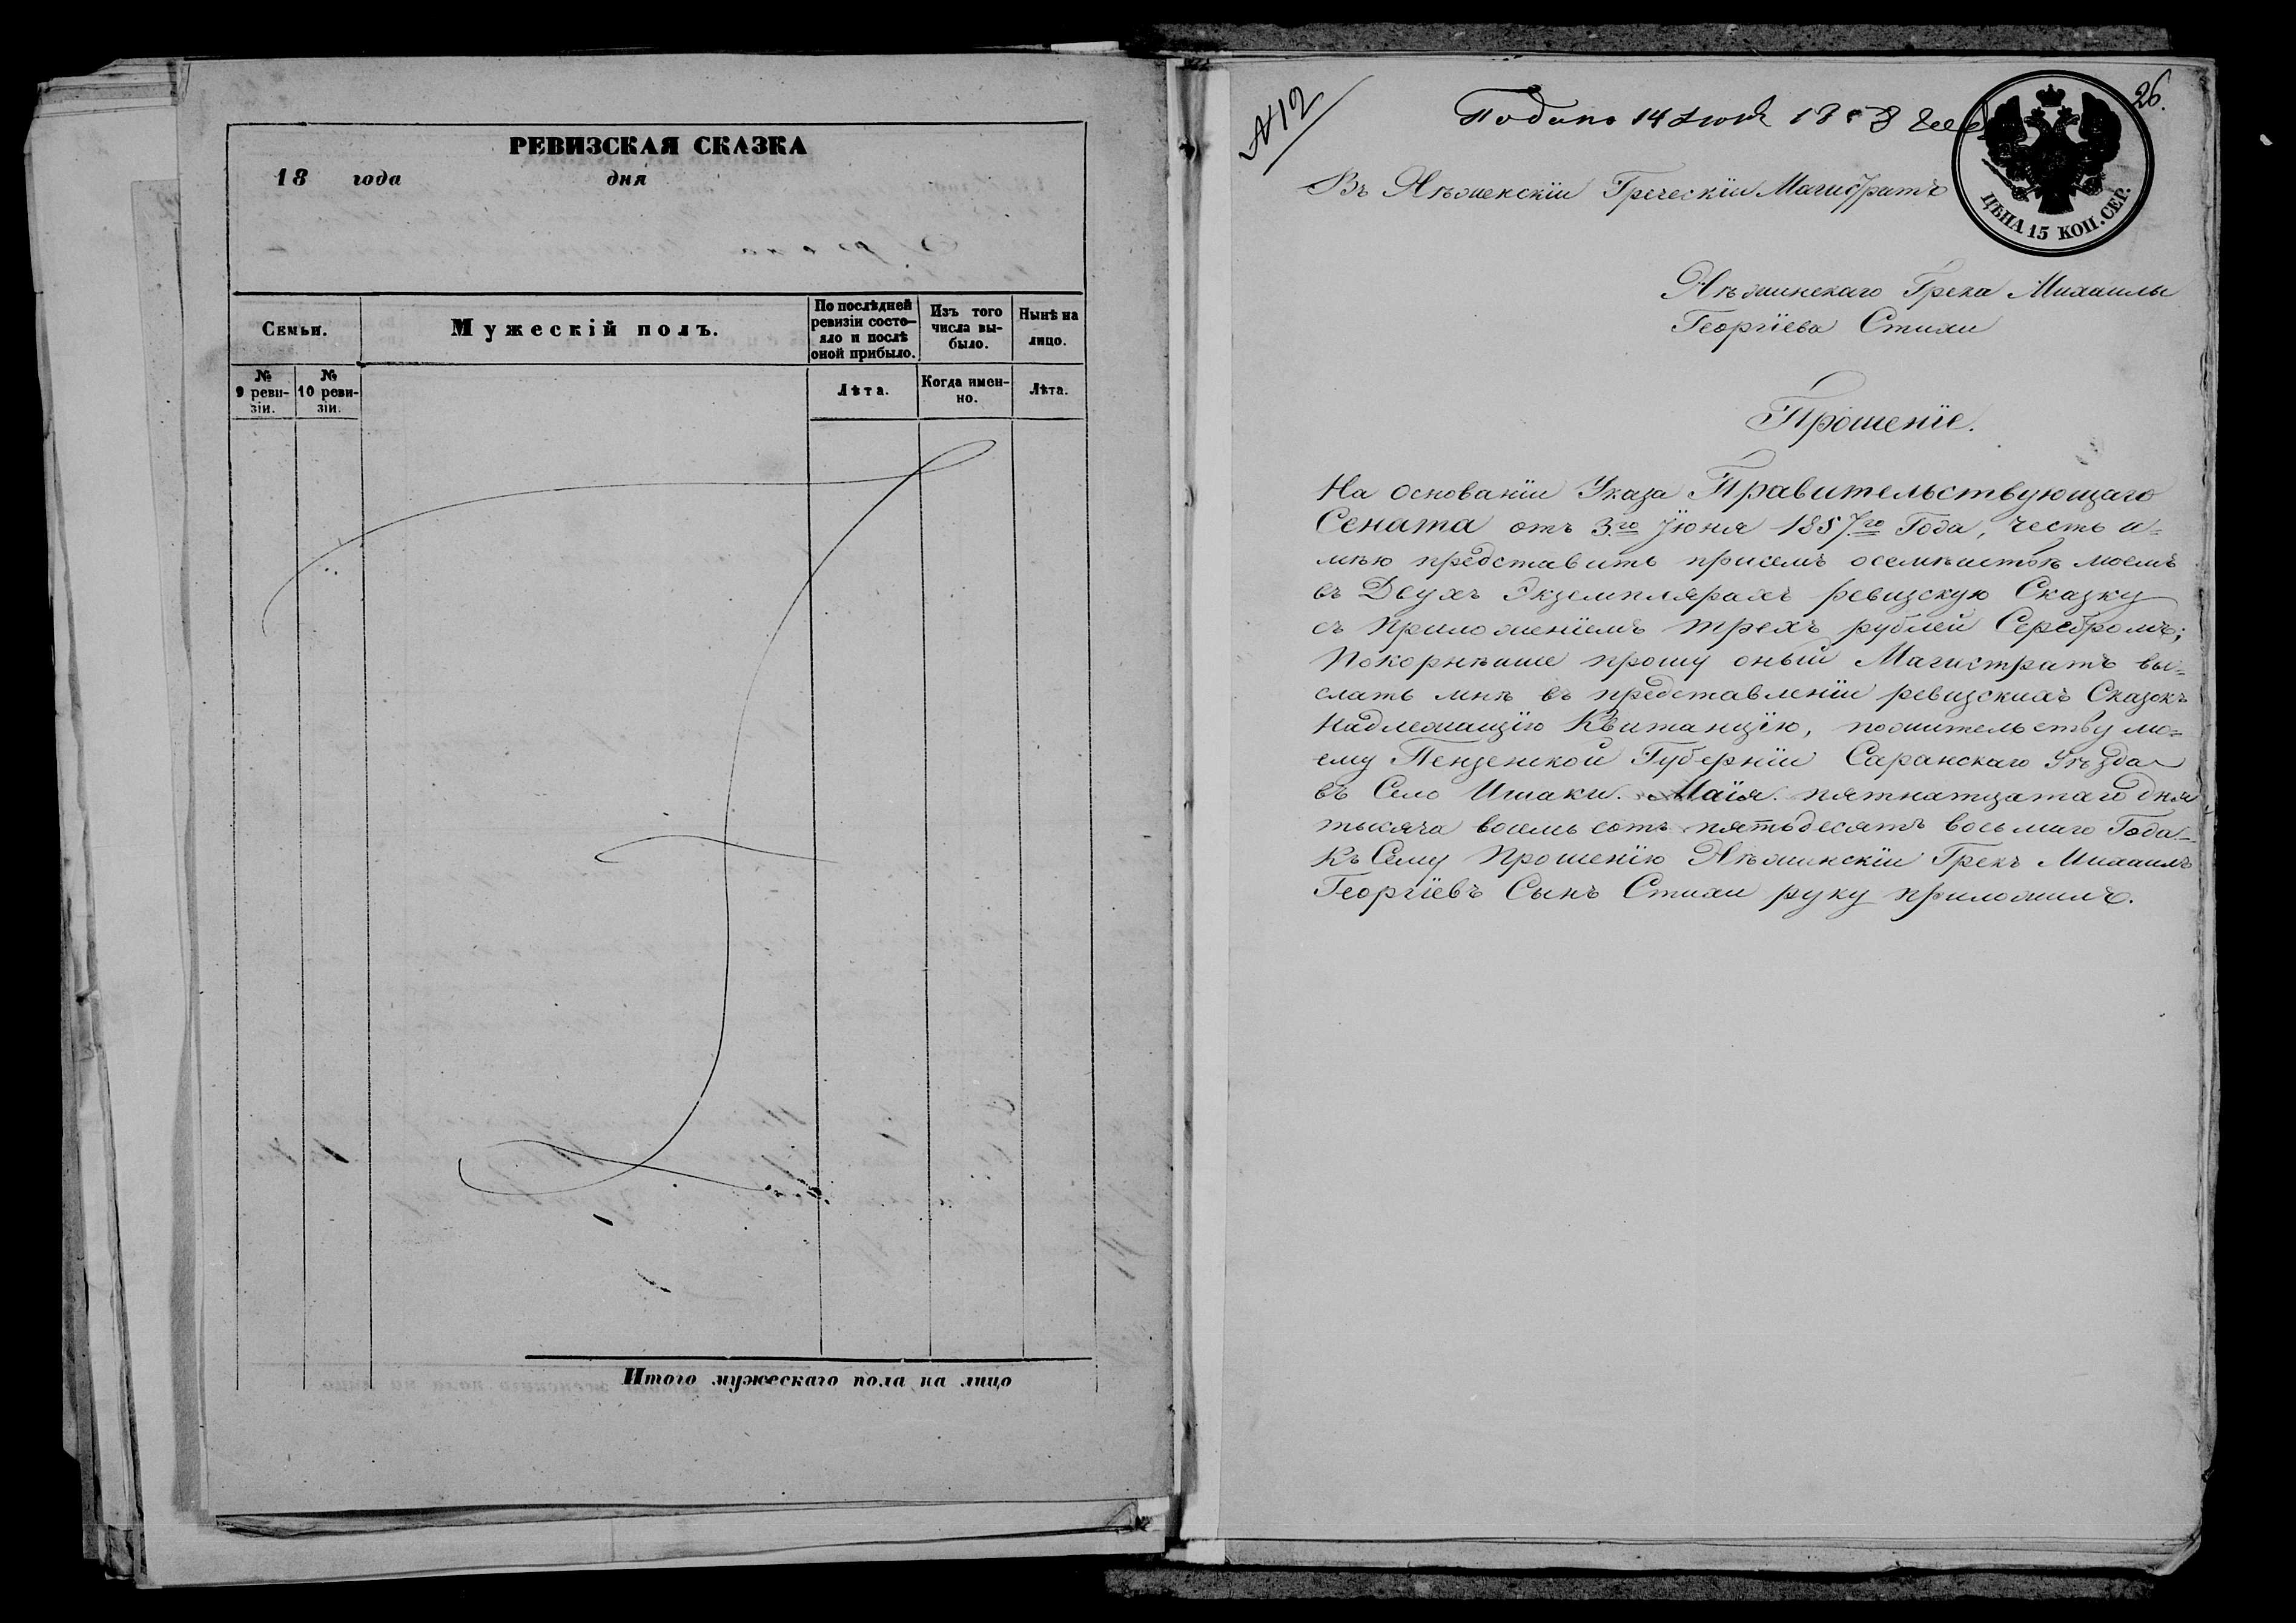 РЕВИЗСКАЯ СКАЗКА
18 года дня
Семьи.
Мужескій полъ.
По послѣдней ревизіи состо-
яло и послѣ
оной прибыло.
Изъ того
числа вы-
было.
Нынѣ на
лицо.
№
9 реви-
зіи.
№
10 реви-
зіи.
Лѣта.
Когда имен-
но.
Лѣта.
Итого мужескаго пола на лицо
№ 12
26.
Подано 14 1858
ЦѢНА 15 КОП. СЕР.
Въ Нѣженскїи Греческїи Магистратъ
Нѣжинскаго Грека Михаилы
Георгїева Стихи
Прошенїе.
На основанїи Указа Правительствующаго
Сената отъ 3.го Їюня 1857.го Года, честь и-
мѣю представить присемъ осемѣистьѣ моемъ
въ Двухъ Экземплярахъ ревизскую Сказку
съ приложенїемъ трехъ рублей Серебромъ;
Покорнѣише прошу оный Магистратъ вы-
слать мнѣ въ представленїи ревизскихъ Сказокъ
Надлежащїю Квитанцїю, пожительству мо-
ему Пензенской Губернїи Саранскаго Уѣзда
въ Село Ишаки. Маїя. пятнатцатаго дня
тысяча восемь сотъ пятьдесятъ восьмаго Года.
Къ Сему Прошенїю Нѣжинскїи Грекъ Михаилъ
Георгїевъ Сынъ Стихи руку приложилъ.